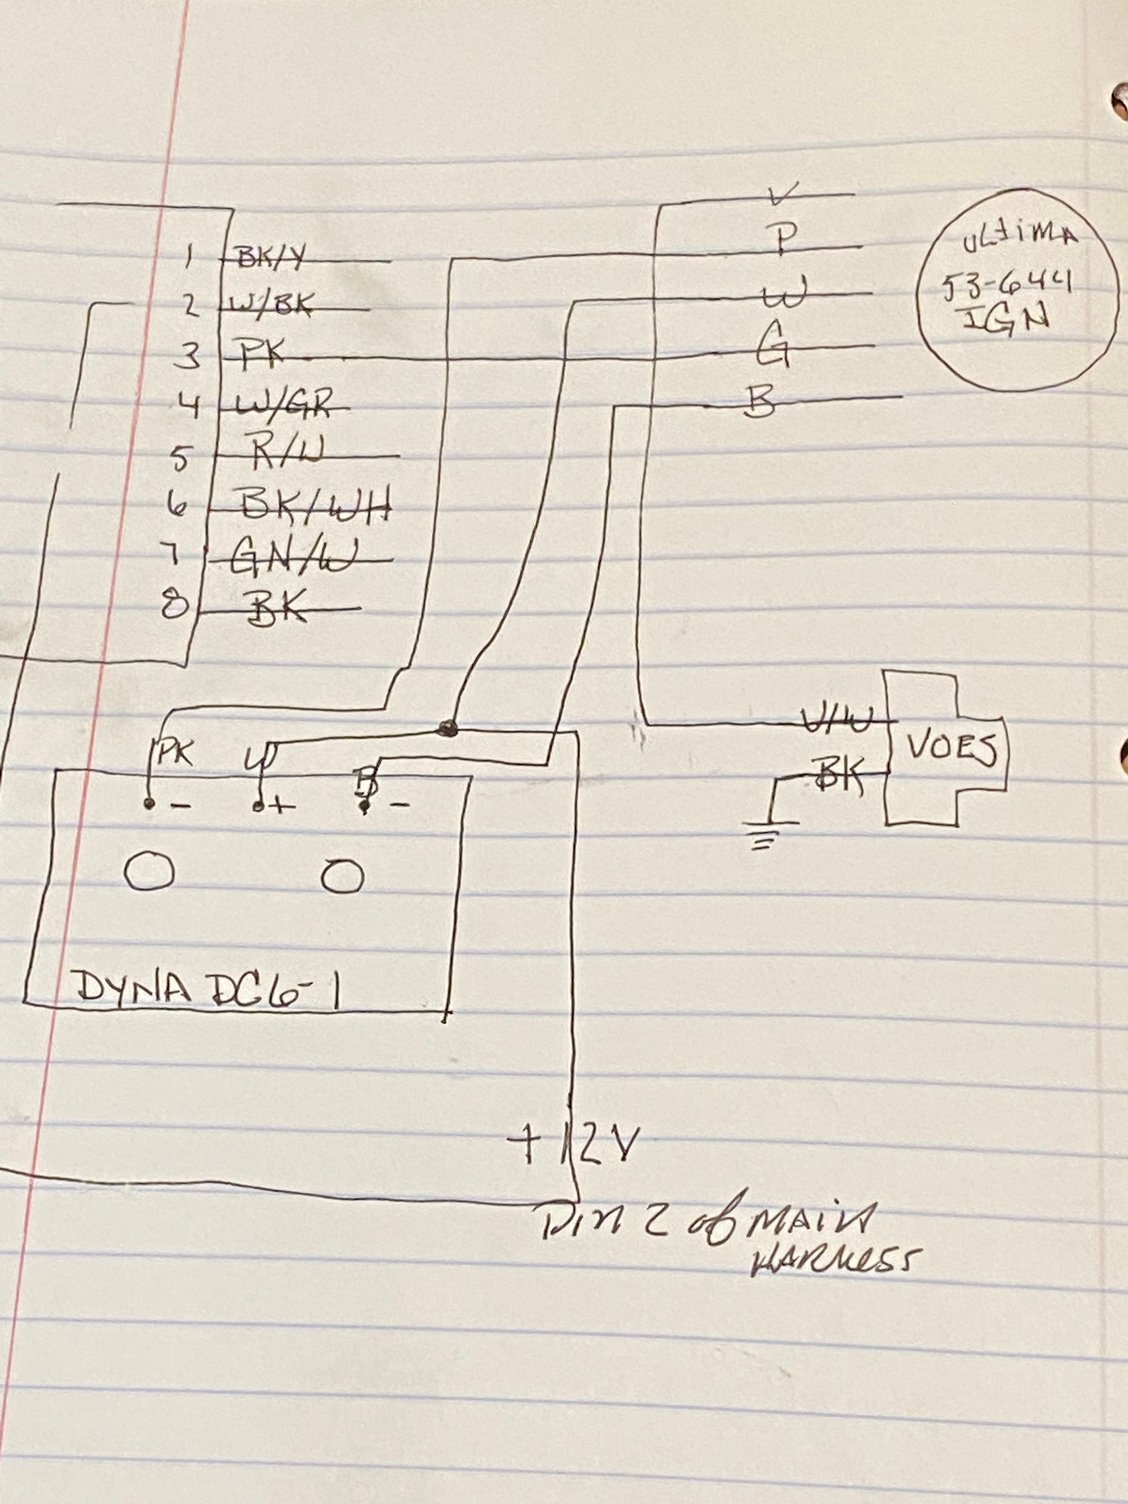 1 BK/Y
2 W/BK
3 PK
4 W/GR
5 R/W
6 BK/WH
7 GN/W
8 BK
V
P
W
G
B
ULTIMA
53-644
IGN
PK
W
B
- + -
DYNA DC6-1
V/W
BK
VOES
+12V
Pin 2 of MAIN
HARNESS